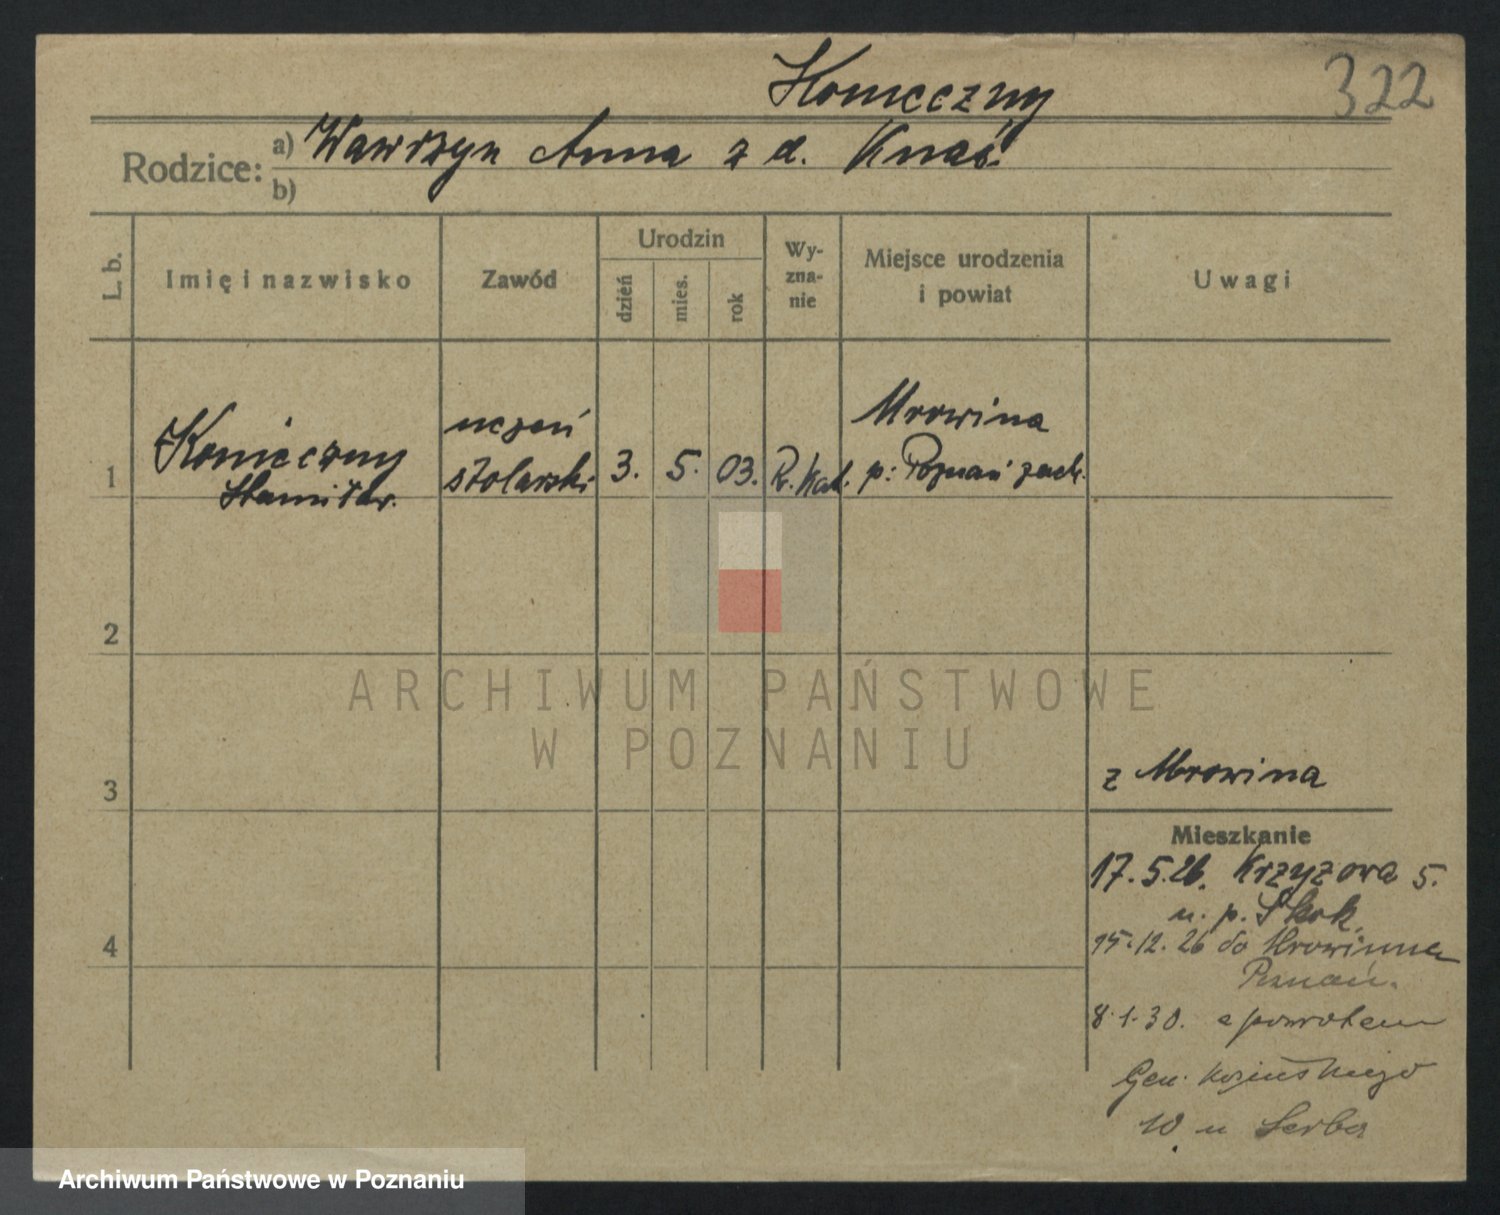 Konieczny
322
Rodzice:
a) Wawrzyn Anna z d. Knaś.
b)
L. b.
Imię i nazwisko
Zawód
Urodzin
dzień
mies.
rok
Wy-
zna-
nie
Miejsce urodzenia
i powiat
Uwagi
1
Konieczny
Stanisław.
uczeń
stolarski
3.
5.
03.
R. Kat.
Mrowina
p: Poznań zach.
2
ARCHIWUM PAŃSTWOWE
W POZNANIU
3
z Mrowina
Mieszkanie
17.5.26. Krzyzowa 5.
u. p. Skok.
4
15.12.26 do Mrowinna
Poznań.
8.1.30. z powrotem
Gen. Kosińskiego
10 u Serba
Archiwum Państwowe w Poznaniu